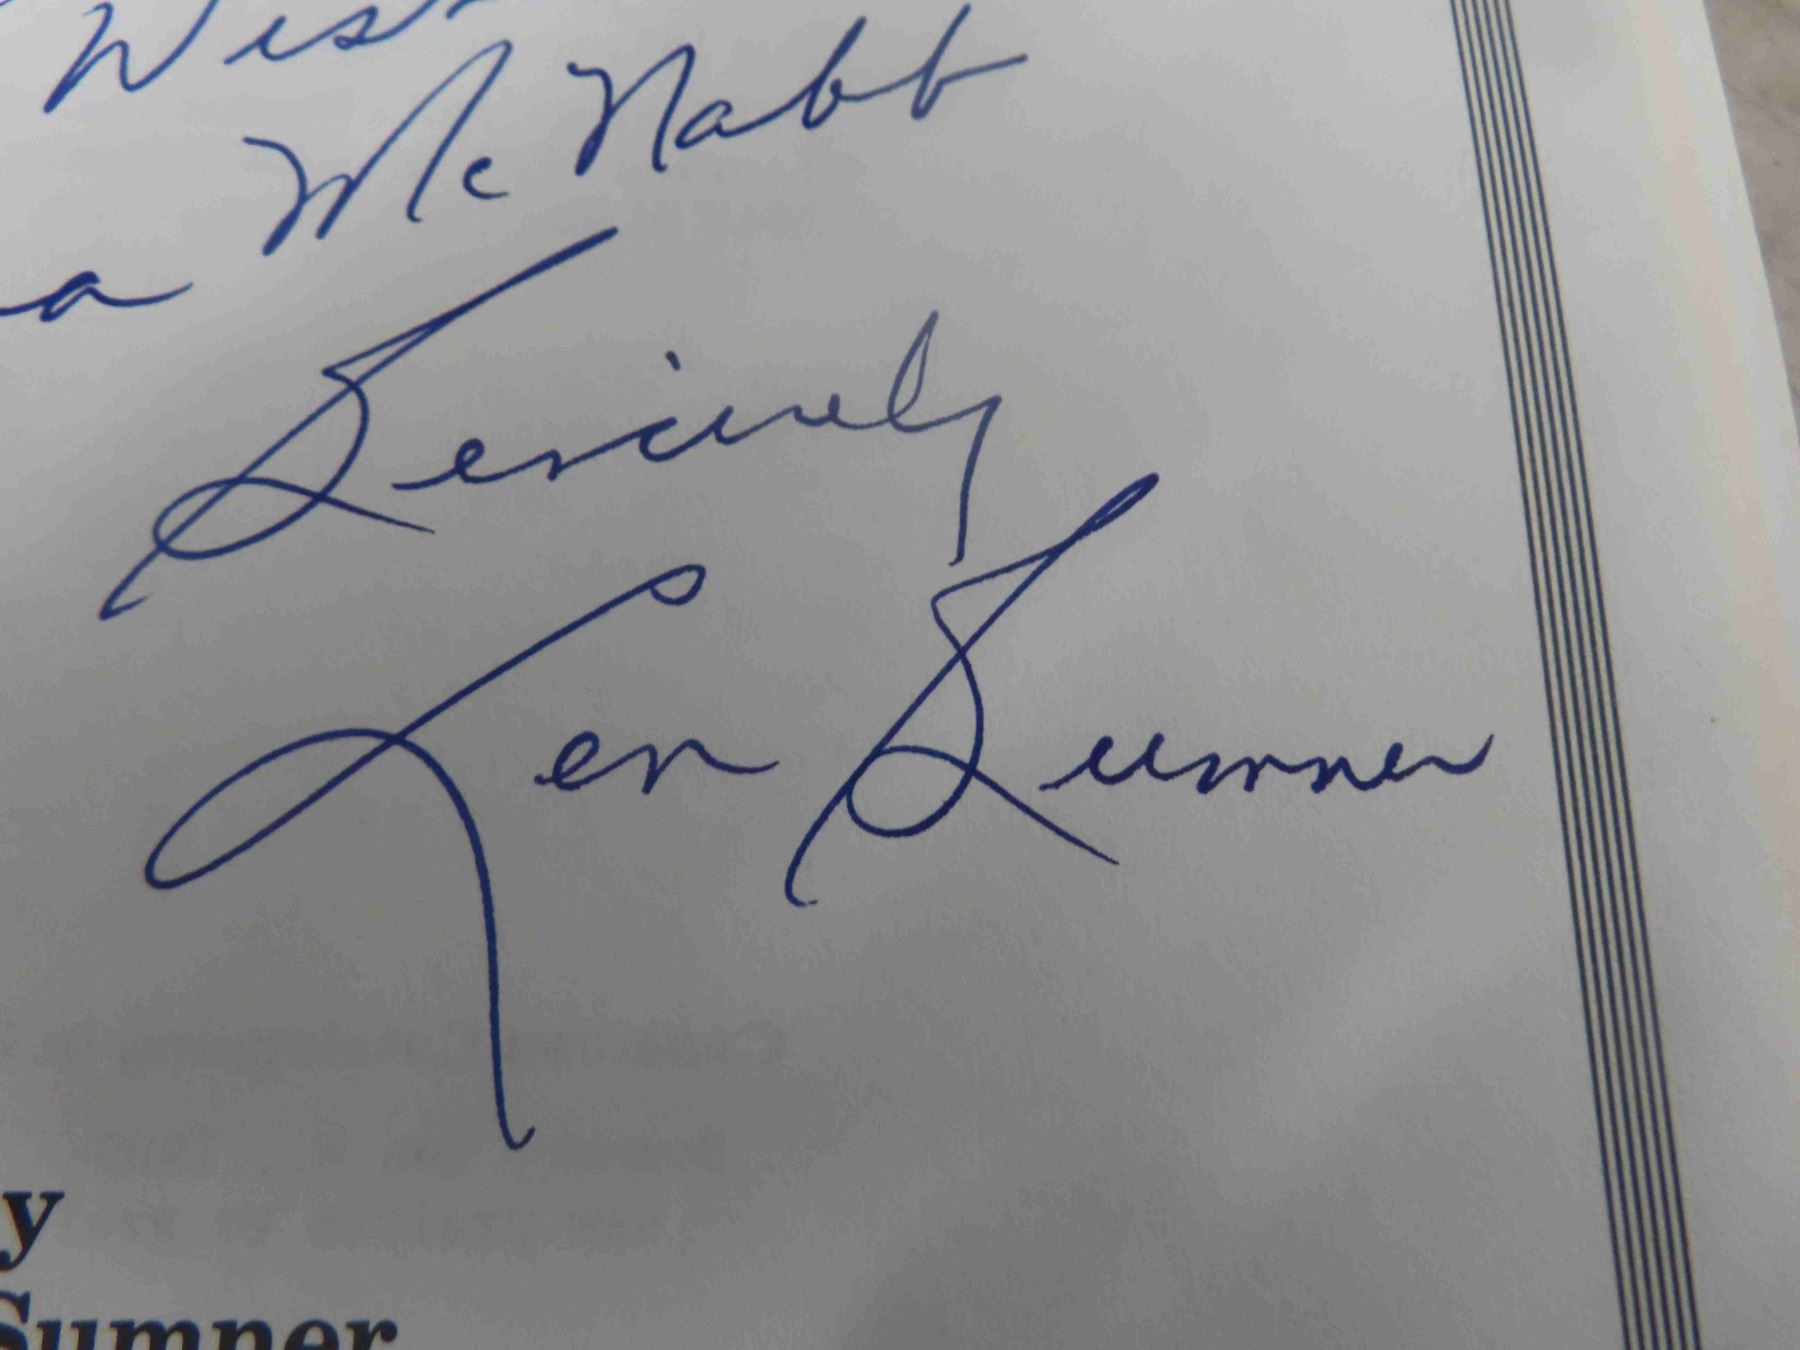 Mc Nabb
Sencirely
Ken Sumner
y
Sumner